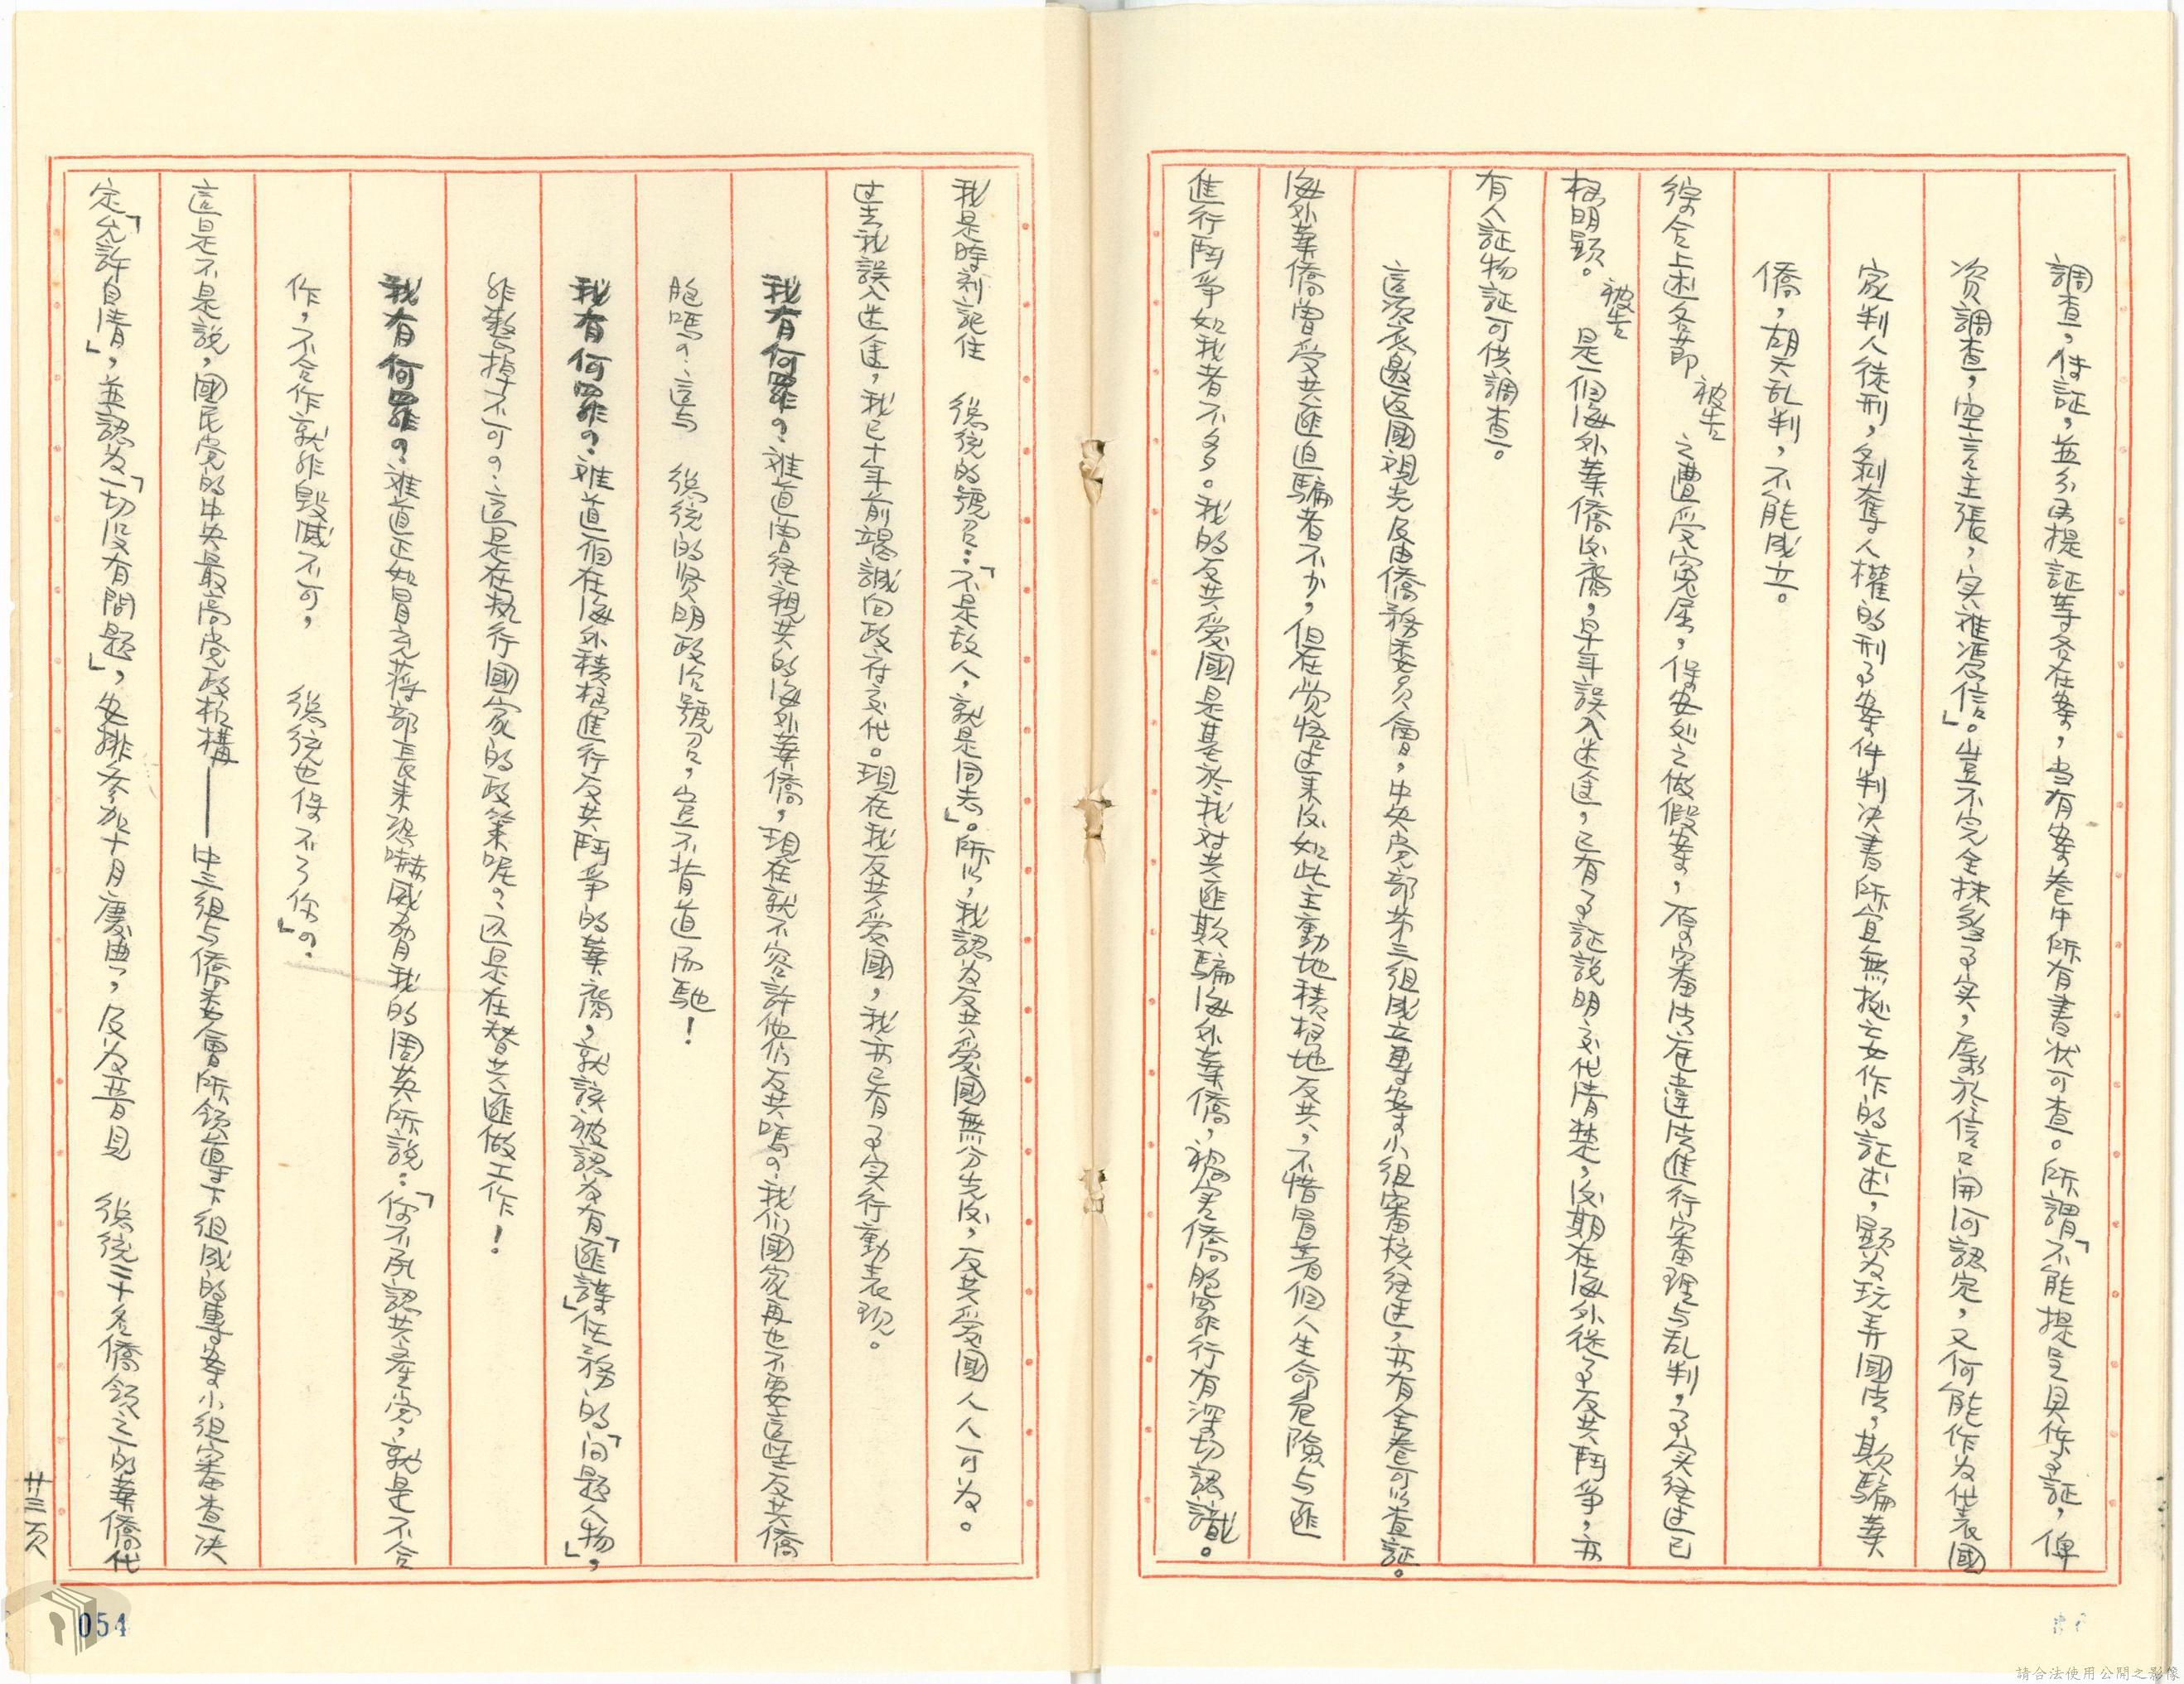 調查，件証，並分另提証等各在案，当有案卷中所有書状可查。所謂「不能提呈具体事証，俾
資調查，空言主張，实难憑信」。豈不完全抹煞事实，屬於信口開河認定，又何能作为代表國
家判人徒刑，剝奪人權的刑事案件判决書所宜無挺妄作的証述，顯为玩弄國法，欺騙華
僑，胡天乱判，不能成立。
綜合上述各節 被告 之遭受寃屈，保安処之做假案，原審法庭違法進行審理与乱判，事实经过已
极明顯。 被告 是一個海外華僑後裔，早年誤入迷途，已有事証説明交代清楚，後期在海外從事反共鬥爭，亦
有人証物証可供調查。
這次应邀返國观光及由僑務委員會，中央党部第三組成立專案小組審核经过，亦有全卷可以查証。
海外華僑曾受共匪迫騙者不少，但在觉悟过来後如此主動地積极地反共，不惜冒著個人生命危險与匪
進行鬥爭如我者不多。我的反共愛國是基於我对共匪欺騙海外華僑，禍害僑胞罪行有深切認識。
我是時刻記住 總統的號召：「不是敌人，就是同志」。所以，我認为反共愛國無分先後，反共愛國人人可为。
过去我誤入迷途，我已十年前竭誠向政府交代。現在我反共愛國，我亦已有事实行動表现。
我有何罪？难道曾经親共的海外華僑，現在就不容許他们反共嗎？我们國家再也不要這些反共僑
胞嗎？這与 總統的贤明政治號召，豈不背道而馳！
我有何罪？难道一個在海外積极進行反共鬥爭的華裔，就該被認为有「匪諜」任務的「问題人物」，
非整掉不可？這是在执行國家的政策呢？还是在替共匪做工作！
我有何罪？难道正如冒充蔣部長来恐嚇威脅我的周英所説：「你不承認共產党，就是不合
作，不合作就非毀滅不可， 總統也保不了你」？
這是不是説，國民党的中央最高党政机構——中三組与僑委會所領導下組成的專案小組審查决
定「允許自清」，並認为「一切没有問題」，安排参加十月慶典，及为晋見 總統三十名僑領之一的華僑代
廿三页
054
請合法使用公開之影像